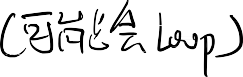 (可能会 Loop)